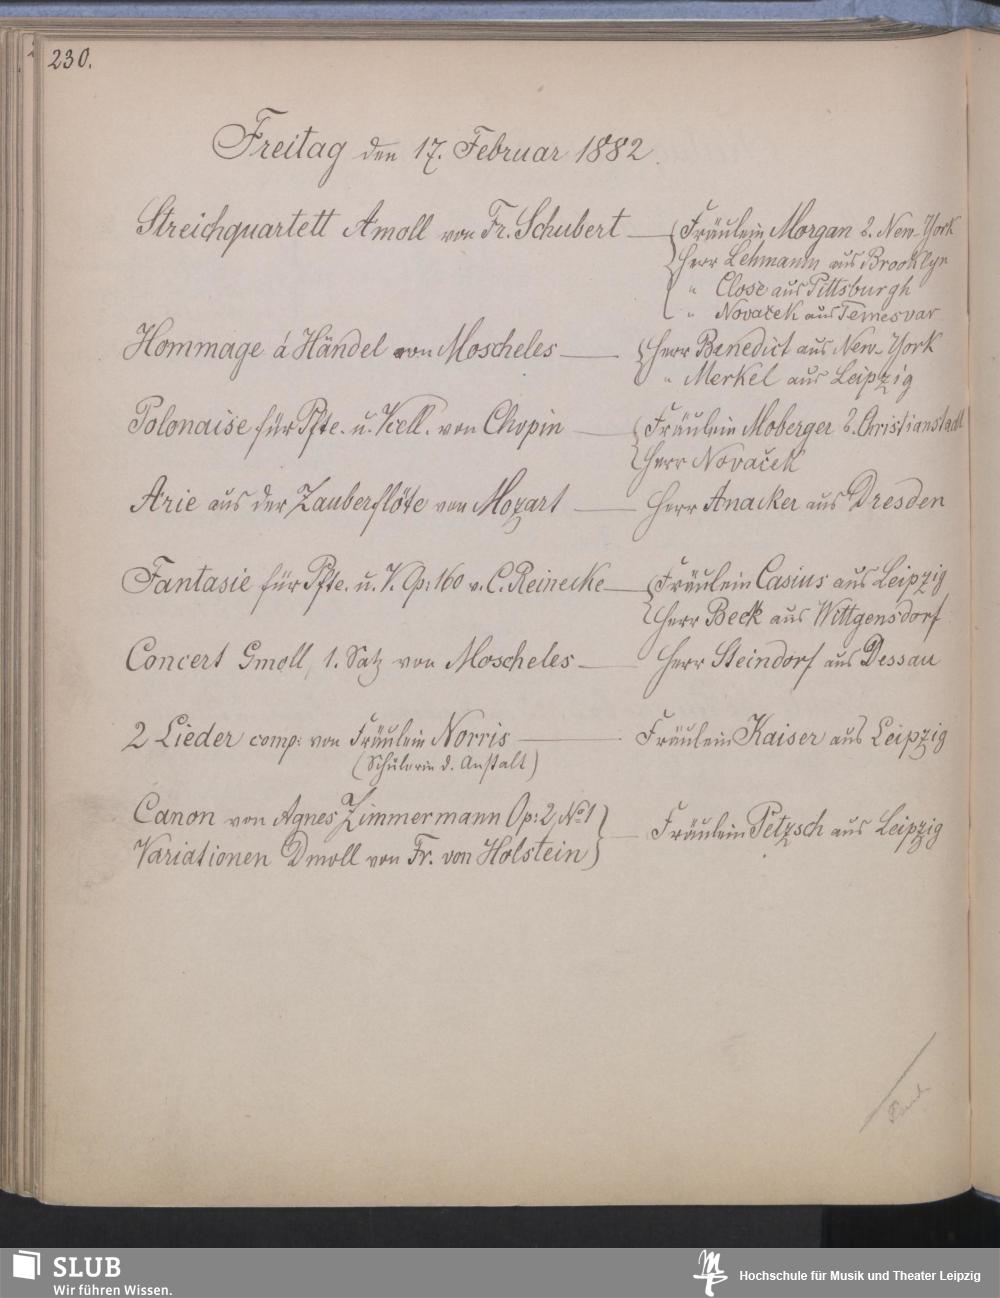 230.
Freitag den 17. Februar 1882.
Streichquartett Amoll von Fr. Schubert — Fräulein Morgan a. New-York
Herr Lehmann aus Brooklyn
" Close aus Pittsburgh
" Novaček aus Temesvar
Hommage á Händel von Moscheles — Herr Benedict aus New-York
" Merkel aus Leipzig
Polonaise für Pfte. u. Vcell. von Chopin — Fräulein Moberger a. Christianstadt
Herr Novaček
Arie aus der Zauberflöte von Mozart — Herr Anacker aus Dresden
Fantasie für Pfte. u. V. Op: 160 v. C. Reinecke — Fräulein Casius aus Leipzig
Herr Beck aus Wittgensdorf
Concert Gmoll, 1. Satz von Moscheles — Herr Steindorf aus Dessau
2 Lieder comp: von Fräulein Norris — Fräulein Kaiser aus Leipzig
(Schülerin d. Anstalt)
Canon von Agnes Zimmermann Op: 2, No 1
Variationen Dmoll von Fr. von Holstein — Fräulein Petzsch aus Leipzig
SLUB
Wir führen Wissen.
Hochschule für Musik und Theater Leipzig